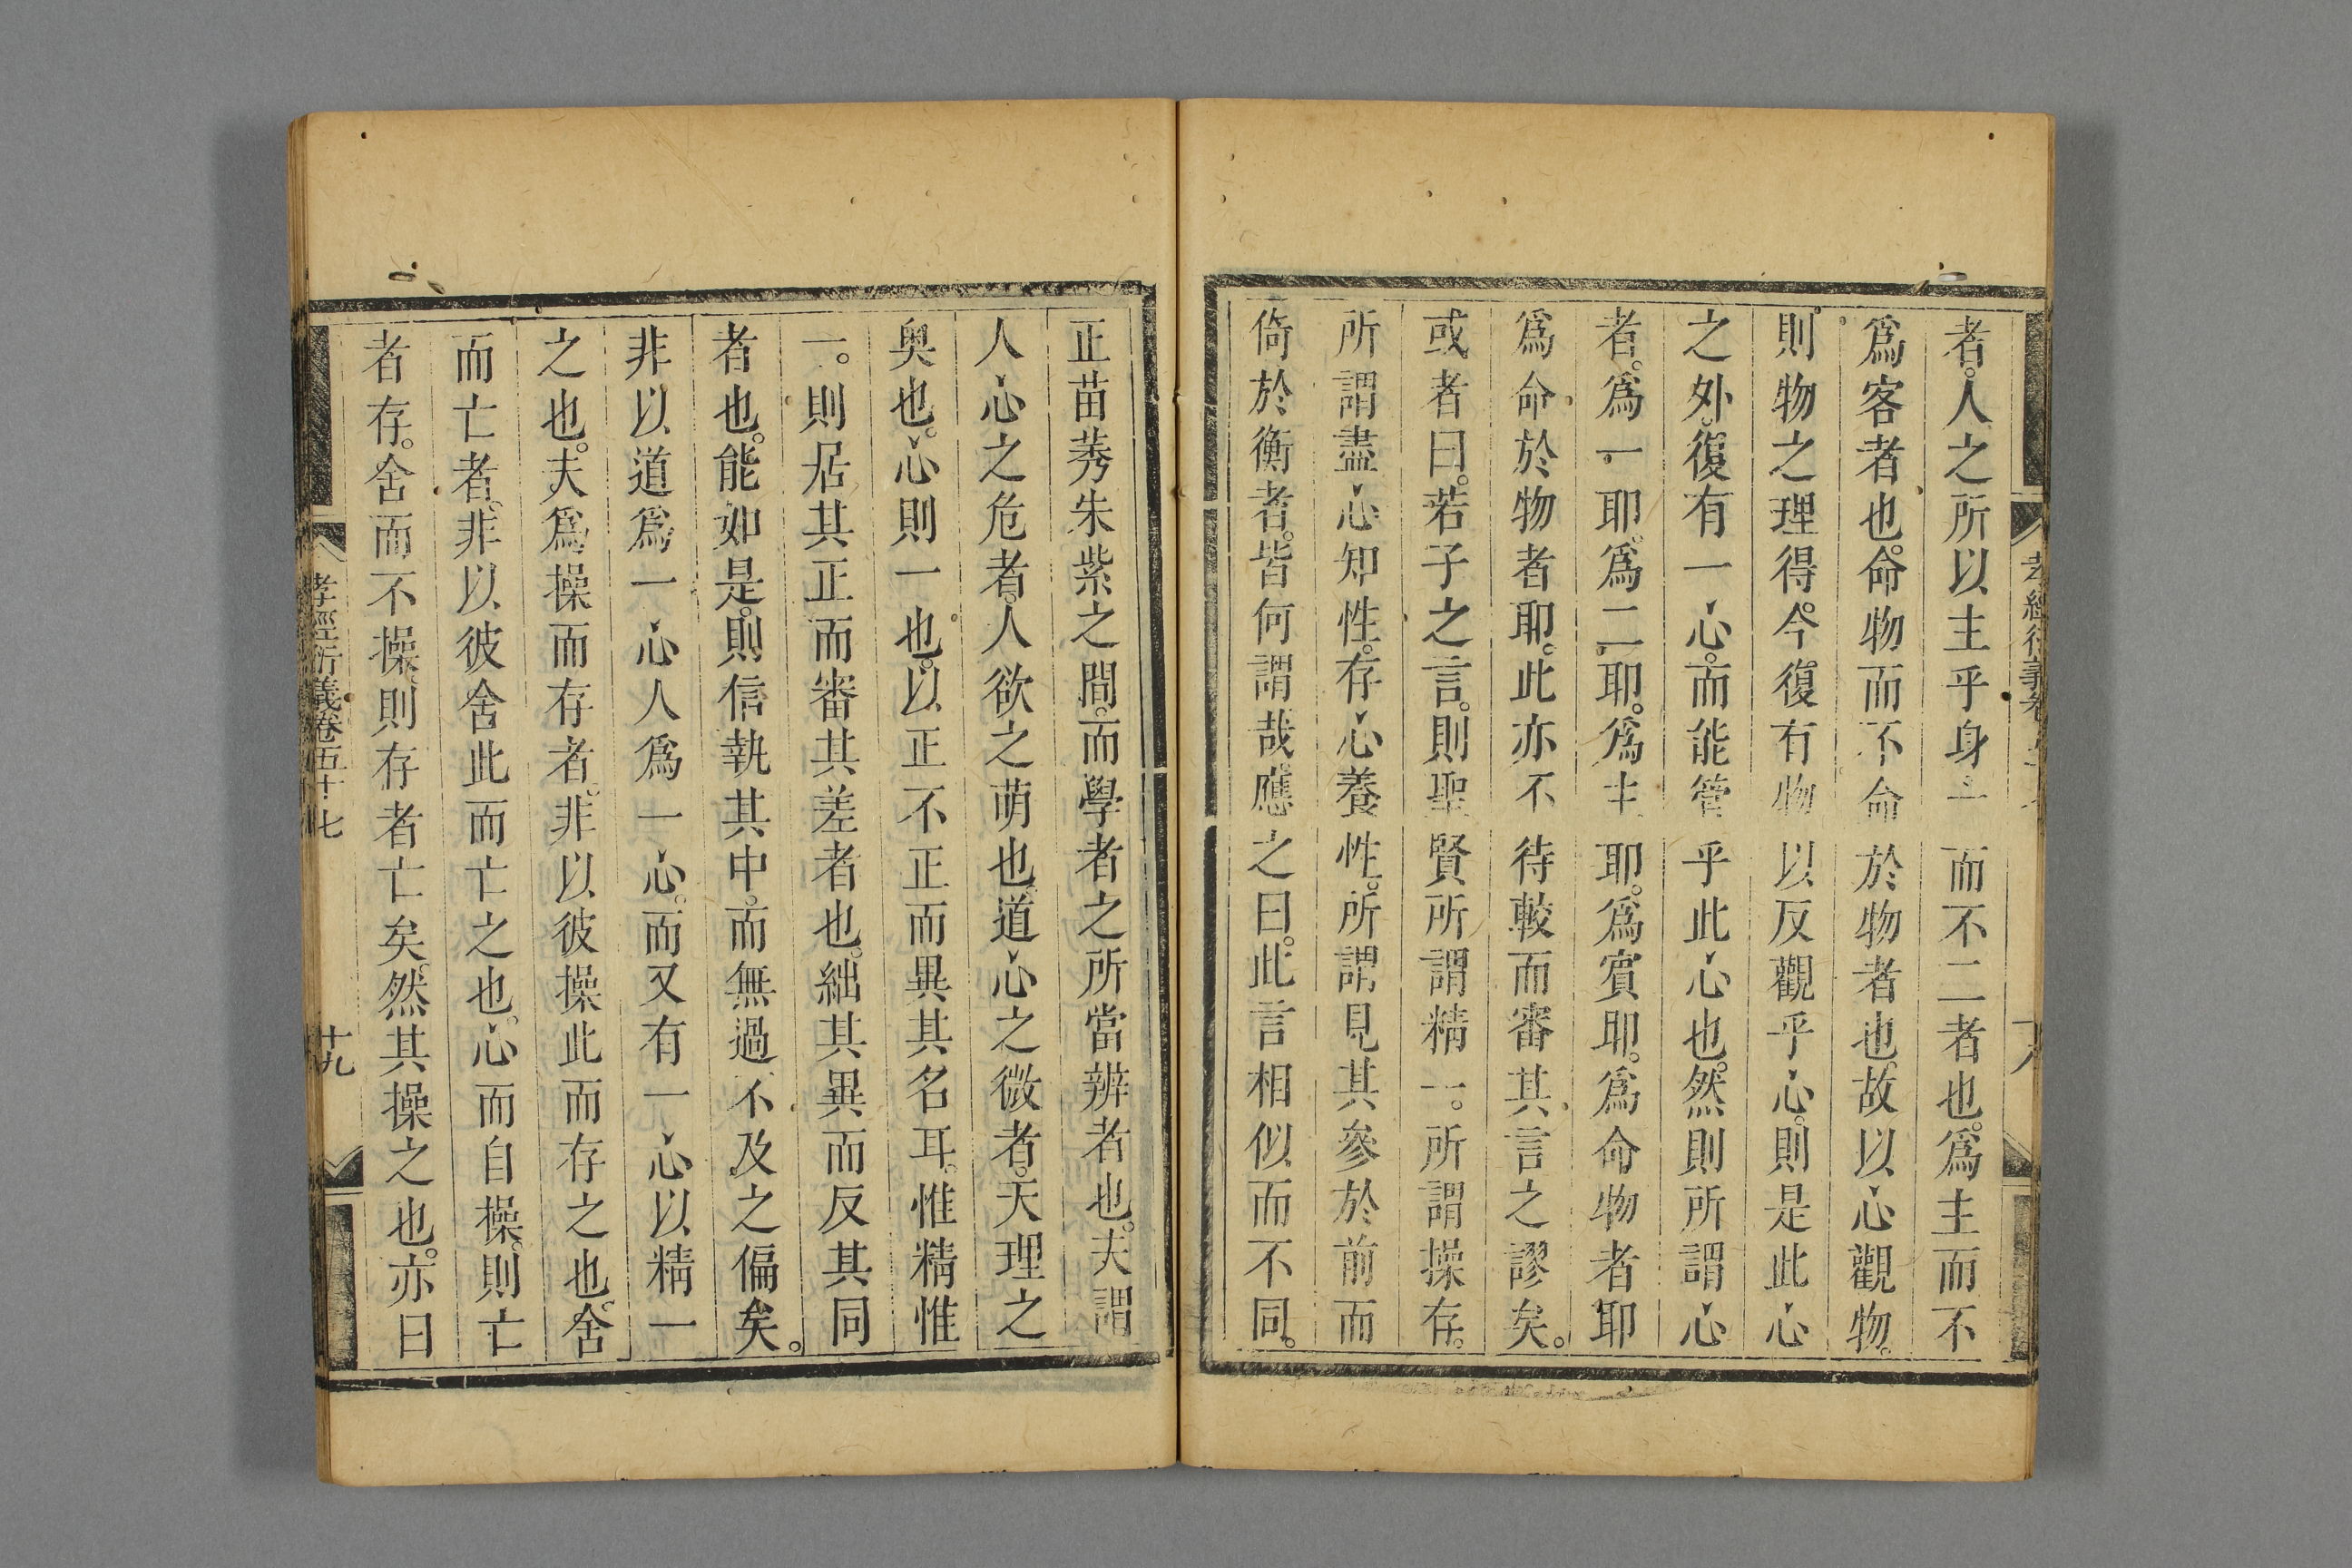 者。人之所以主乎身一而不二者也。爲主而不
爲客者也。命物而不命於物者也。故以心觀物。
則物之理得。今復有物以反觀乎心。則是此心
之外。復有一心。而能管乎此心也。然則所謂心
者。爲一耶。爲二耶。爲主耶。爲賓耶。爲命物者耶
爲命於物者耶。此亦不待較而審其言之謬矣。
或者曰。若子之言。則聖賢所謂精一。所謂操存。
所謂盡心知性。存心養性。所謂見其參於前而
倚於衡者。皆何謂哉。應之曰。此言相似而不同。
孝經衍義卷
十八
正苗莠朱紫之間。而學者之所當辨者也。夫謂
人心之危者。人欲之萌也。道心之微者。天理之
奥也。心則一也。以正不正而異其名耳。惟精惟
一。則居其正而審其差者也。絀其異而反其同
者也。能如是。則信執其中。而無過不及之偏矣。
非以道爲一心人爲一心。而又有一心以精一
之也。夫爲操而存者。非以彼操此而存之也。舍
而亡者。非以彼舍此而亡之也。心而自操。則亡
者存。舍而不操。則存者亡矣。然其操之也。亦曰
孝經衍義卷五十七
十九